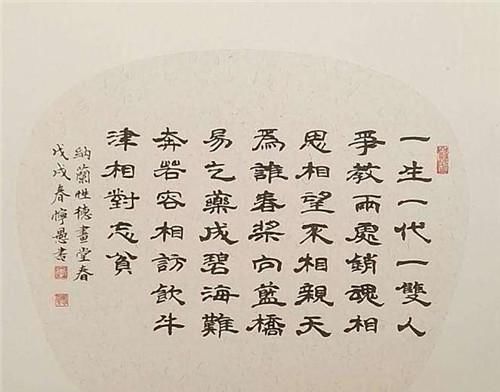 一生一代一雙人
爭教兩處銷魂相
思相望不相親天
為誰春槳向藍橋
易乞藥成碧海難
奔若容相訪飲牛
津相對忘貧
納蘭性德畫堂春
戊戌春愚書